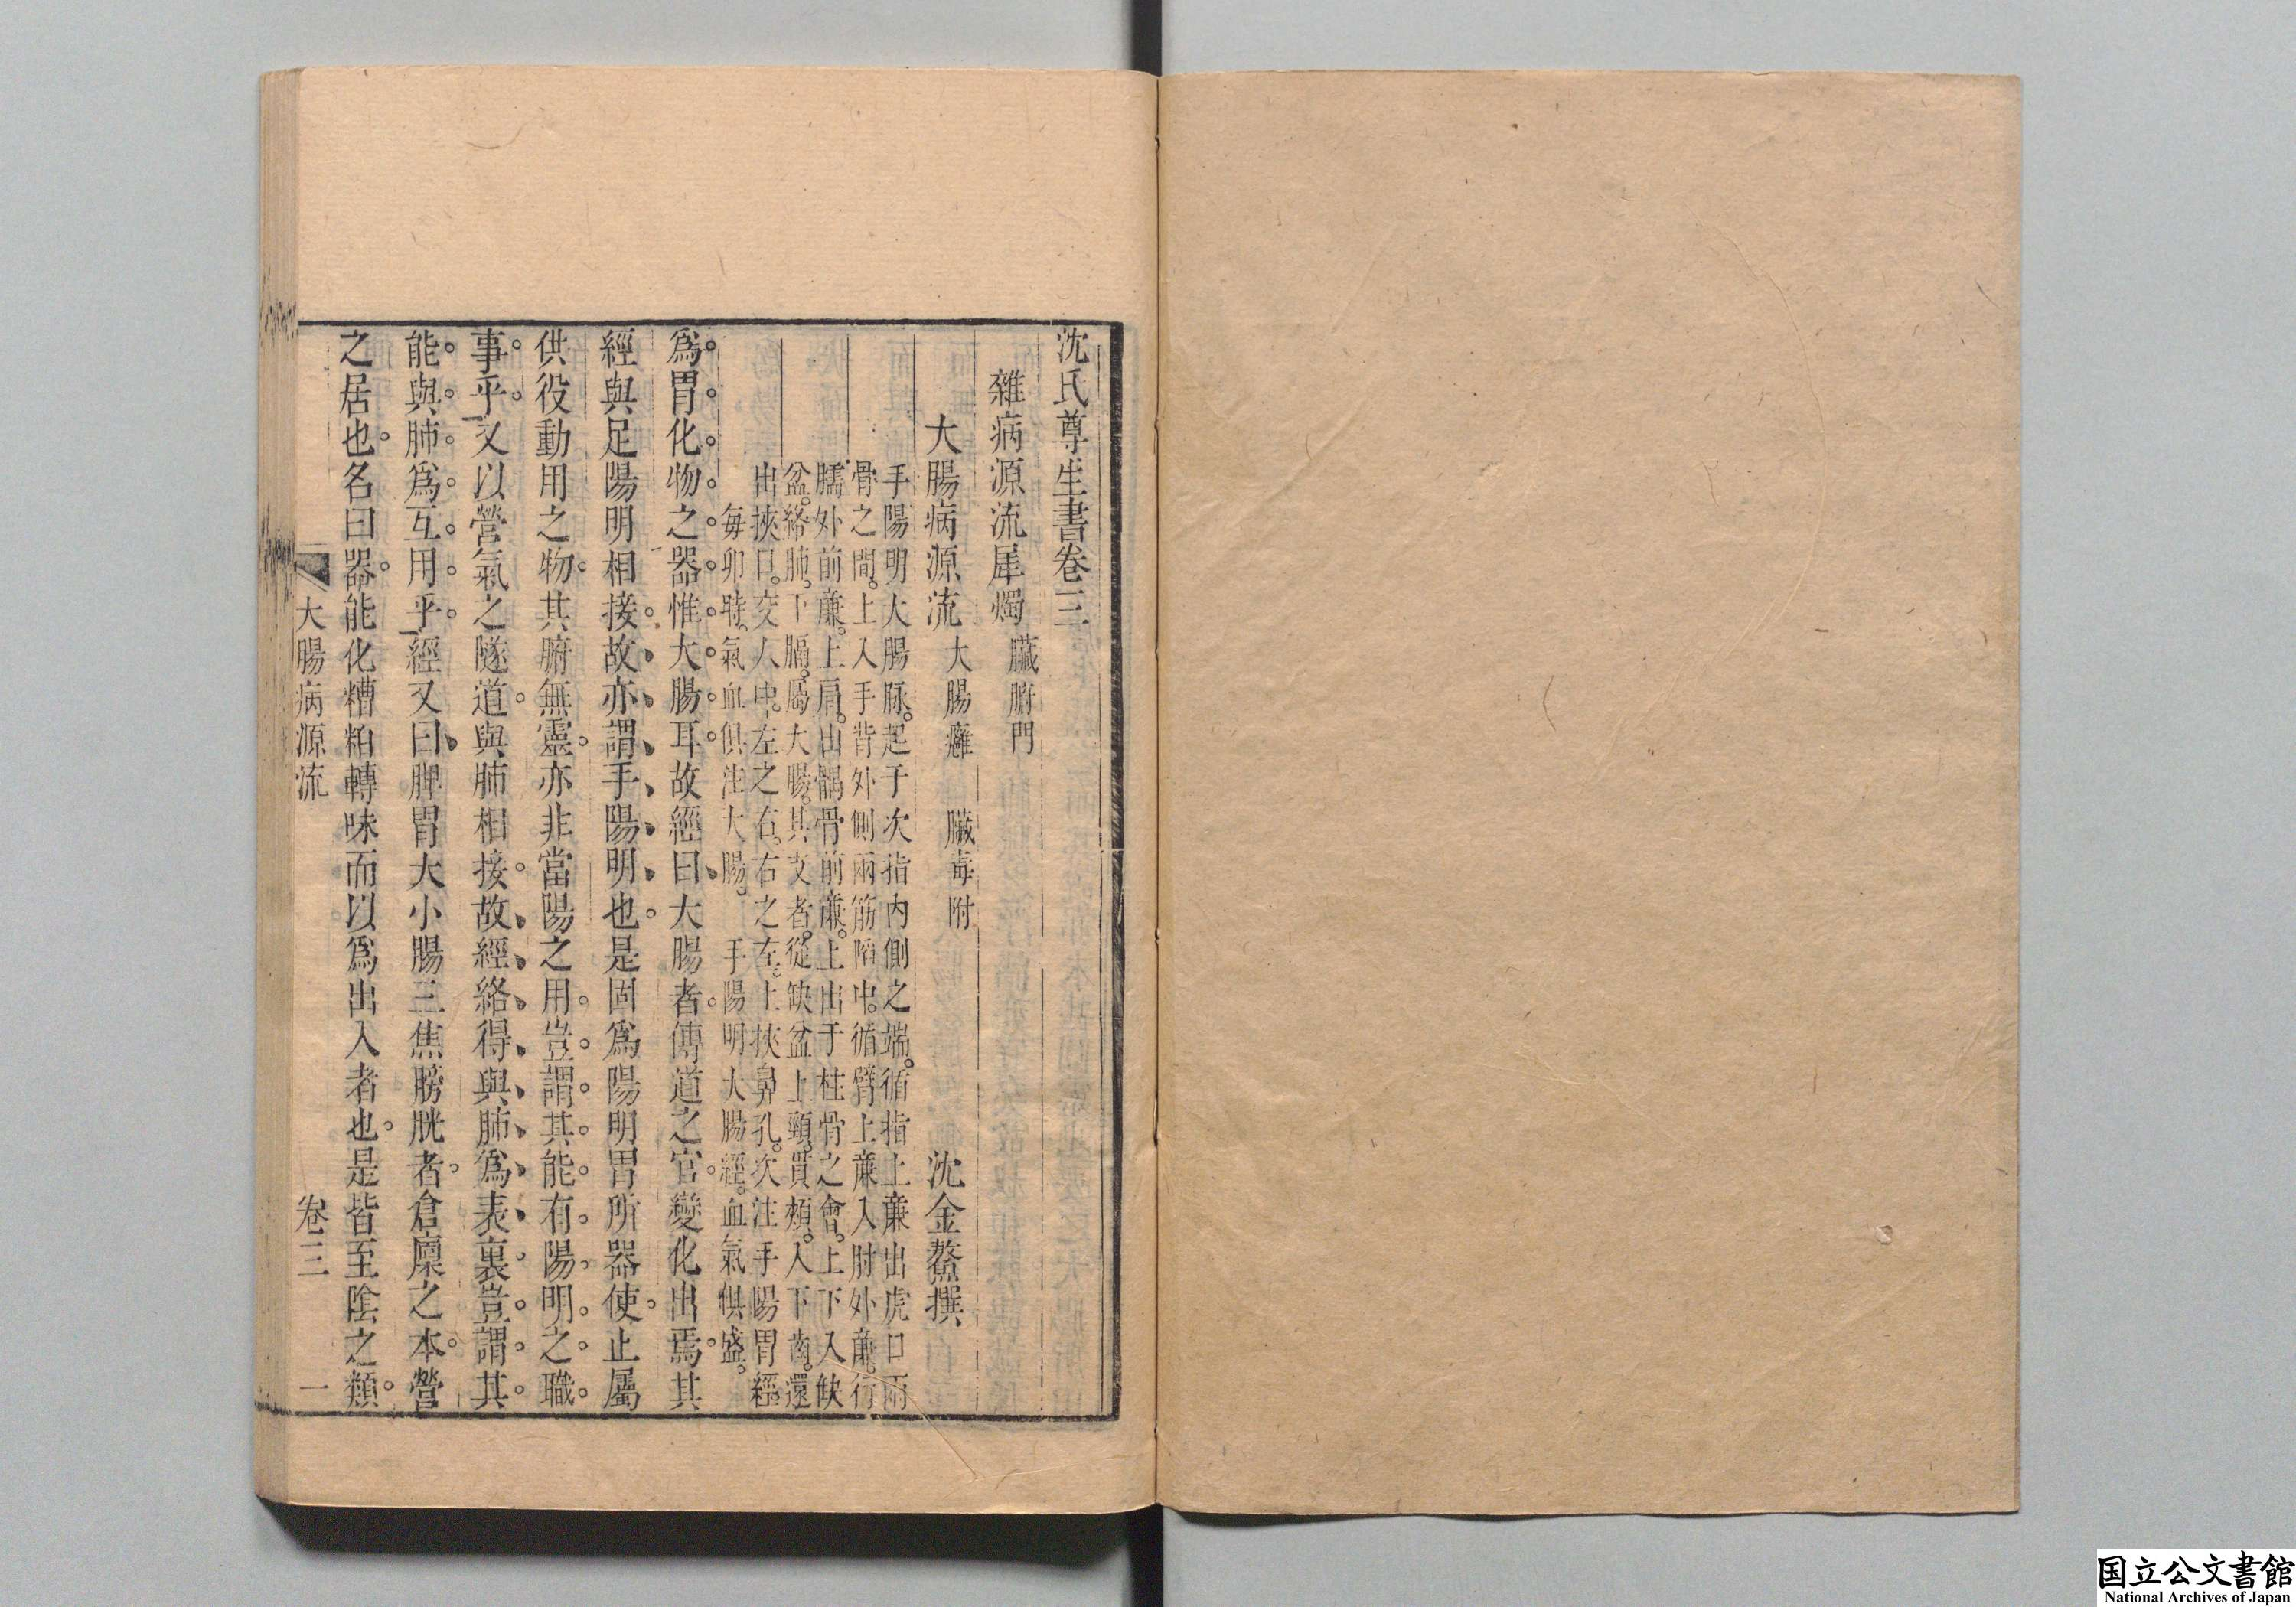 沈氏尊生書卷三
雜病源流犀燭　臟腑門
大腸病源流　大腸癰　臟毒附　沈金鰲撰
手陽明大腸脉。起于次指內側之端。循指上亷出虎口兩
骨之間。上入手背外側兩筋陷中。循臂上亷入肘外亷。行
臑外前亷。上肩。出髃骨前亷。上出于柱骨之會。上下入缺
盆。絡肺。下膈。屬大腸。其支者。從缺盆上頸。貫頰。入下齒。還
出挾口。交人中。左之右。右之左。上挾鼻孔。次注手陽胃經。
每卯時。氣血俱注大腸。　手陽明大腸經。血氣俱盛。
爲胃化物之器惟大腸耳故經曰大腸者。傳道之官。變化出焉。其
經與足陽明相接。故亦謂手陽明也。是固爲陽明胃所器使。止屬
供役動用之物。其腑無靈。亦非當陽之用。豈謂其能有陽明之職
事乎又以營氣之隧道。與肺相接。故經絡得與肺爲表裏豈謂其
能與肺爲互用乎經又曰脾胃大小腸三焦膀胱者。倉廩之本。營
之居也。名曰器。能化糟粕轉味而以爲出入者也。是皆至陰之類。
大腸病源流　卷三　一
国立公文書館
National Archives of Japan